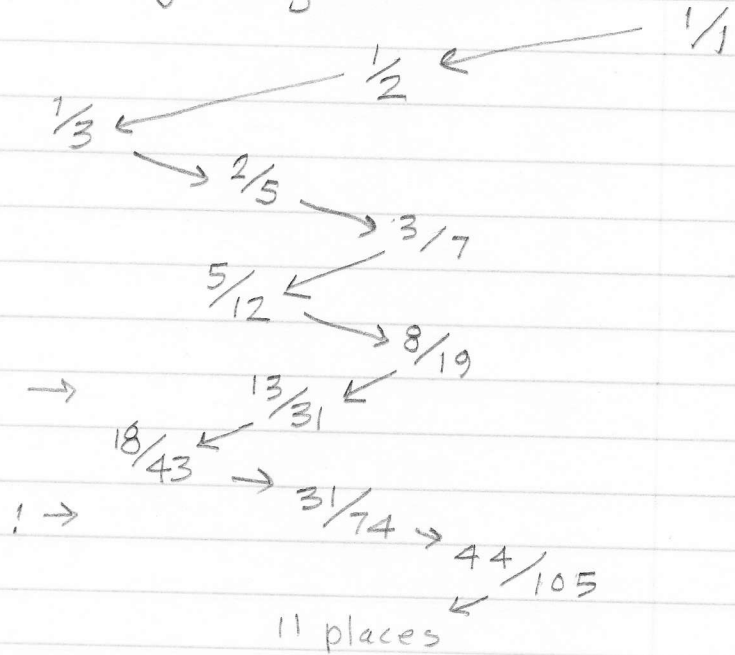 1/1
1/2
1/3
2/5
3/7
5/12
8/19
→ 13/31
18/43
→ 31/74
! → → 44/105
11 places